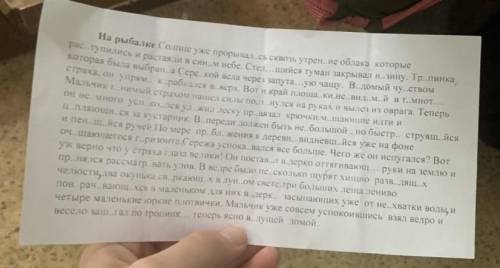 На рыбалке.Солнце уже прорывал..сь сквозь утрен..ие облака которые
рас..тупились и растаяли в син..м небе. Стел...щийся туман закрывал н..зину. Тр..пинка,
которая была выбран..а Сере..кой вела через запута...ую чащу. В..домый чу..ством
страха, он упрям.. к..рабкался в..верх. Вот и край площа..ки не..вид..м..й в т..мнот...
Мальчик г..нимый страхом нашел силы по..т..нулся на руках и вылез из оврага. Теперь
он не..много усп..ко..лся у..жил леску пр..вязал крючки м..шающие идти и
ц..пляющи..ся за кустарник. В..переди должен быть не..большой , но быстр.. струящ..йся
и пен..щ..йся ручей.По мере пр..бл..жения к деревн.. видневш..йся уже на фоне
оч..щающегося г..ризонта,Сережа успока..вался все больше. Чего же он испугался? Вот
уж верно что у страха глаза велики! Он постав..л в..дерко оттягивающ... руки на землю и
пр..нялся рассматр..вать улов. В ве..ре было не..сколько щурят хищно разв..дящ..х
челюсти,два окунька св..ркающ..х в лун..ом свете,три больших леща лениво
пов..рач..вающ..хся в маленьком для них в..дерк.. засыпающих уже от не..хватки воды,и
четыре маленькие юркие плотвички. Мальчик уже совсем успокоившись взял ведро и
весело заш..гал по тропинк... теперь ясно в..дущей домой.